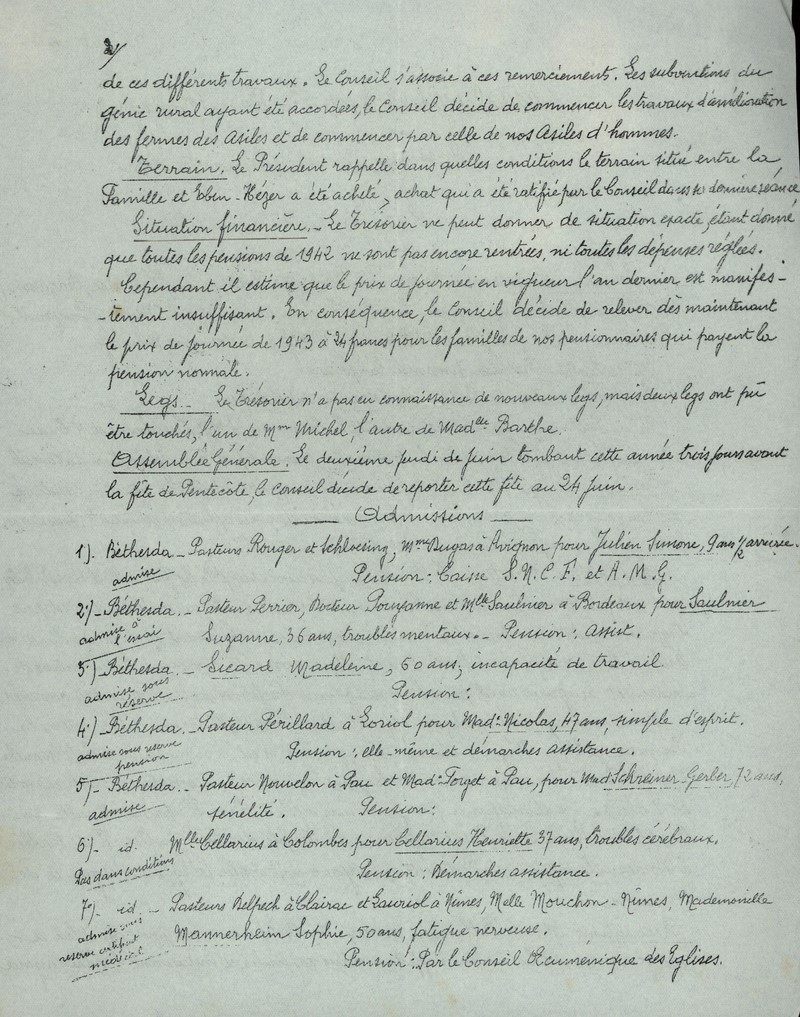 3/
de ces différents travaux. Le Conseil s'associe à ces remerciements. Les subventions du
génie rural ayant été accordées, le Conseil décide de commencer les travaux d'amélioration
des fermes des Asiles et de commencer par celle de nos Asiles d'hommes.
Terrain. Le Président rappelle dans quelles conditions le terrain situé entre la
Famille et Eben-Hézer a été acheté, achat qui a été ratifié par le Conseil dans sa dernière séance
Situation financière. - Le Trésorier ne peut donner de situation exacte, étant donné
que toutes les pensions de 1942 ne sont pas encore rentrées, ni toutes les dépenses réglées.
Cependant il estime que le prix de journée en vigueur l'an dernier est manifes-
-tement insuffisant. En conséquence, le Conseil décide de relever dès maintenant
le prix de journée de 1943 à 24 francs pour les familles de nos pensionnaires qui payent la
pension normale.
Legs. - Le Trésorier n'a pas eu connaissance de nouveaux legs, mais deux legs ont pû
être touchés, l'un de Mme Michel, l'autre de Madelle Barthe.
Assemblée Générale. Le deuxième jeudi de Juin tombant cette année trois jours avant
la fête de Pentecôte, le Conseil décide de reporter cette fête au 24 Juin.
Admissions
1)- Béthesda - Pasteurs Rouger et Schloesing, Mme Dugas à Avignon pour Julien Simone, 9 ans 1/2 arriérée.
admise
Pension: Caisse S.N.C.F. et A.M.G.
2°)- Béthesda. - Pasteur Perrier, Docteur Pouyanne et Mlle Saulnier à Bordeaux pour Saulnier
admise à l'essai
Suzanne, 36 ans, troubles mentaux. - Pension: Assist.
3°)- Béthesda - Sicard Madeleine, 60 ans, incapacité de travail
admise sous réserve
Pension:
4°)- Béthesda. - Pasteur Périllard à Loriol pour Made Nicolas, 47 ans, simple d'esprit.
admise sous réserve pension
Pension: elle-même et démarches assistance.
5°)- Béthesda. Pasteur Nouvelon à Pau et Made Forget à Pau, pour Mad Schreiner-Gerber, 72 ans,
admise
sénélité. Pension:
6°)- id. Mlle Cellarius à Colombes pour Cellarius Henriette 37 ans, troubles cérébraux.
Pas dans conditions
Pension: Démarches assistance.
7°)- id. - Pasteurs Delpech à Clairac et Lauriol à Nîmes, Melle Mouchon - Nîmes, Mademoiselle
admise sous réserve certificat médical
Mannerheim Sophie, 50 ans, fatigue nerveuse.
Pension: Par le Conseil Œcuménique des Eglises.